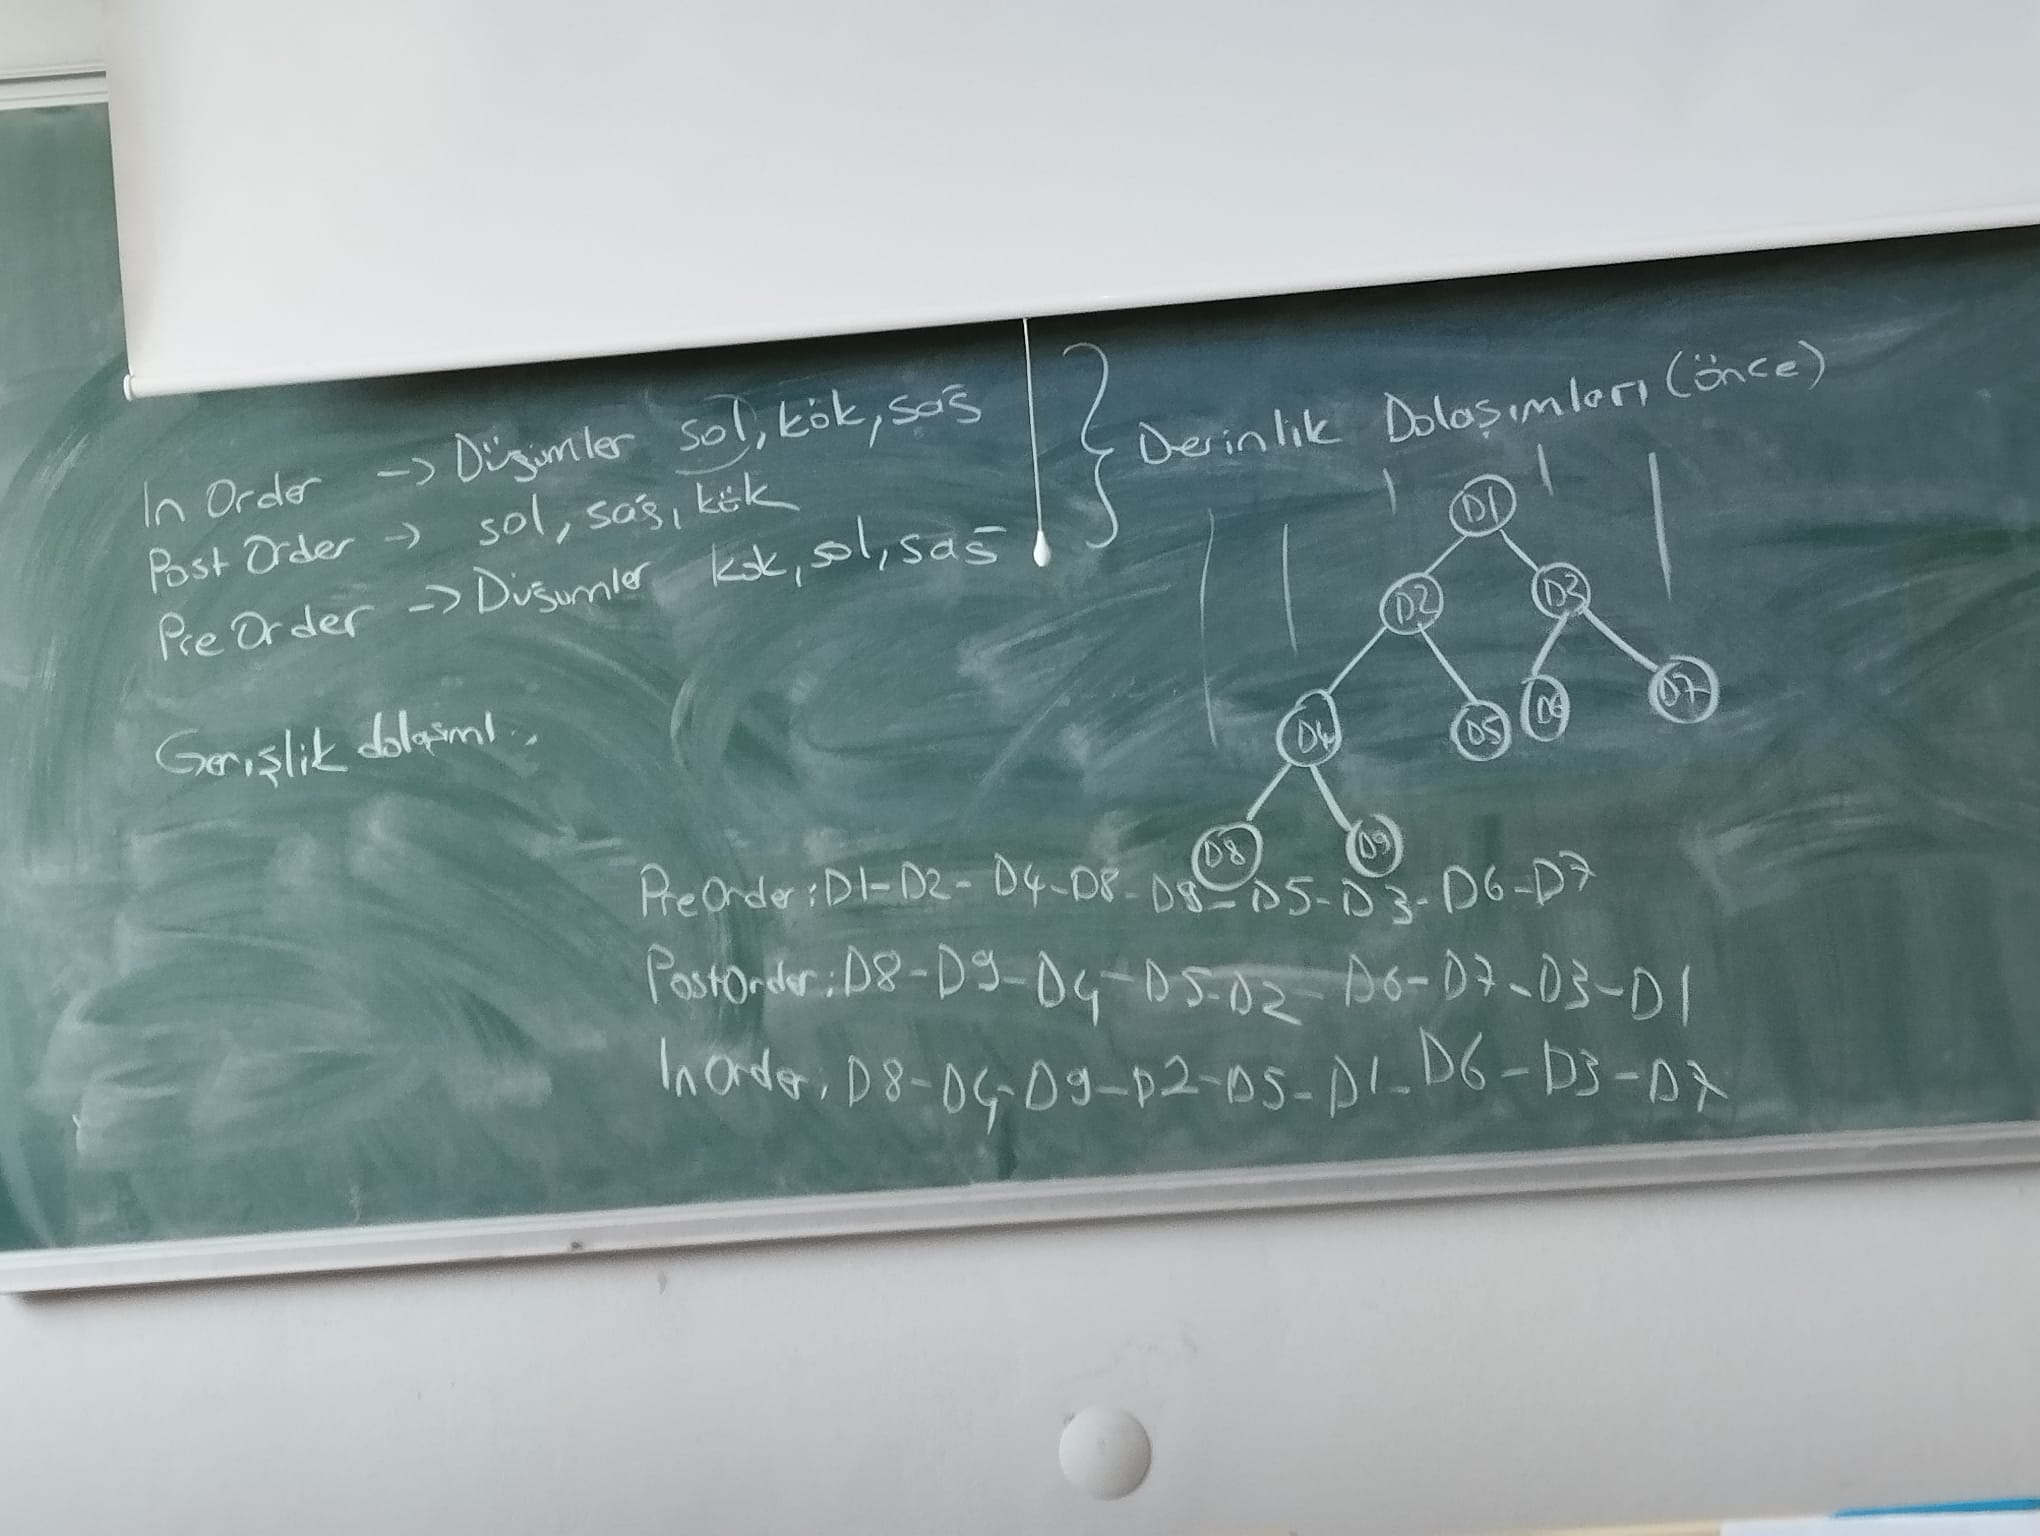 In Order -> Düğümler sol, kök, sağ
Post Order -> sol, sağ, kök
Pre Order -> Düğümler kök, sol, sağ
} Derinlik Dolaşımları (önce)
Genişlik dolaşımı
D1
D2 D3
D4 D5 D6 D7
D8 D9
PreOrder: D1-D2-D4-D8-D9-D5-D3-D6-D7
PostOrder: D8-D9-D4-D5-D2-D6-D7-D3-D1
InOrder: D8-D4-D9-D2-D5-D1-D6-D3-D7